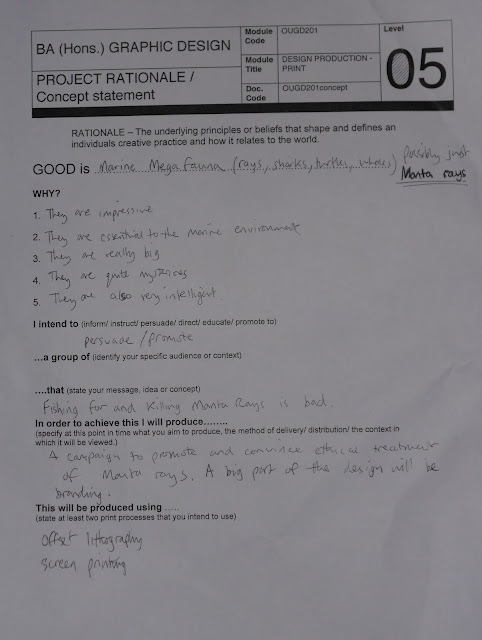 BA (Hons.) GRAPHIC DESIGN
PROJECT RATIONALE /
Concept statement
Module Code
OUGD201
Module Title
DESIGN PRODUCTION - PRINT
Doc. Code
OUGD201concept
Level
05
RATIONALE – The underlying principles or beliefs that shape and defines an
individuals creative practice and how it relates to the world.
GOOD is Marine Mega Fauna (rays, sharks, turtles, whales) possibly just
Manta rays
WHY?
1. They are impressive
2. They are essential to the marine environment
3. They are really big
4. They are quite mysterious
5. They are also very intelligent.
I intend to (inform/ instruct/ persuade/ direct/ educate/ promote to)
persuade / promote
...a group of (identify your specific audience or context)
....that (state your message, idea or concept)
Fishing for and killing Manta Rays is bad.
In order to achieve this I will produce........
(specify at this point in time what you aim to produce, the method of delivery/ distribution/ the context in
which it will be viewed.)
A campaign to promote and convince ethical treatment
of Manta rays. A big part of the design will be
branding.
This will be produced using .....
(state at least two print processes that you intend to use)
offset lithography
screen printing